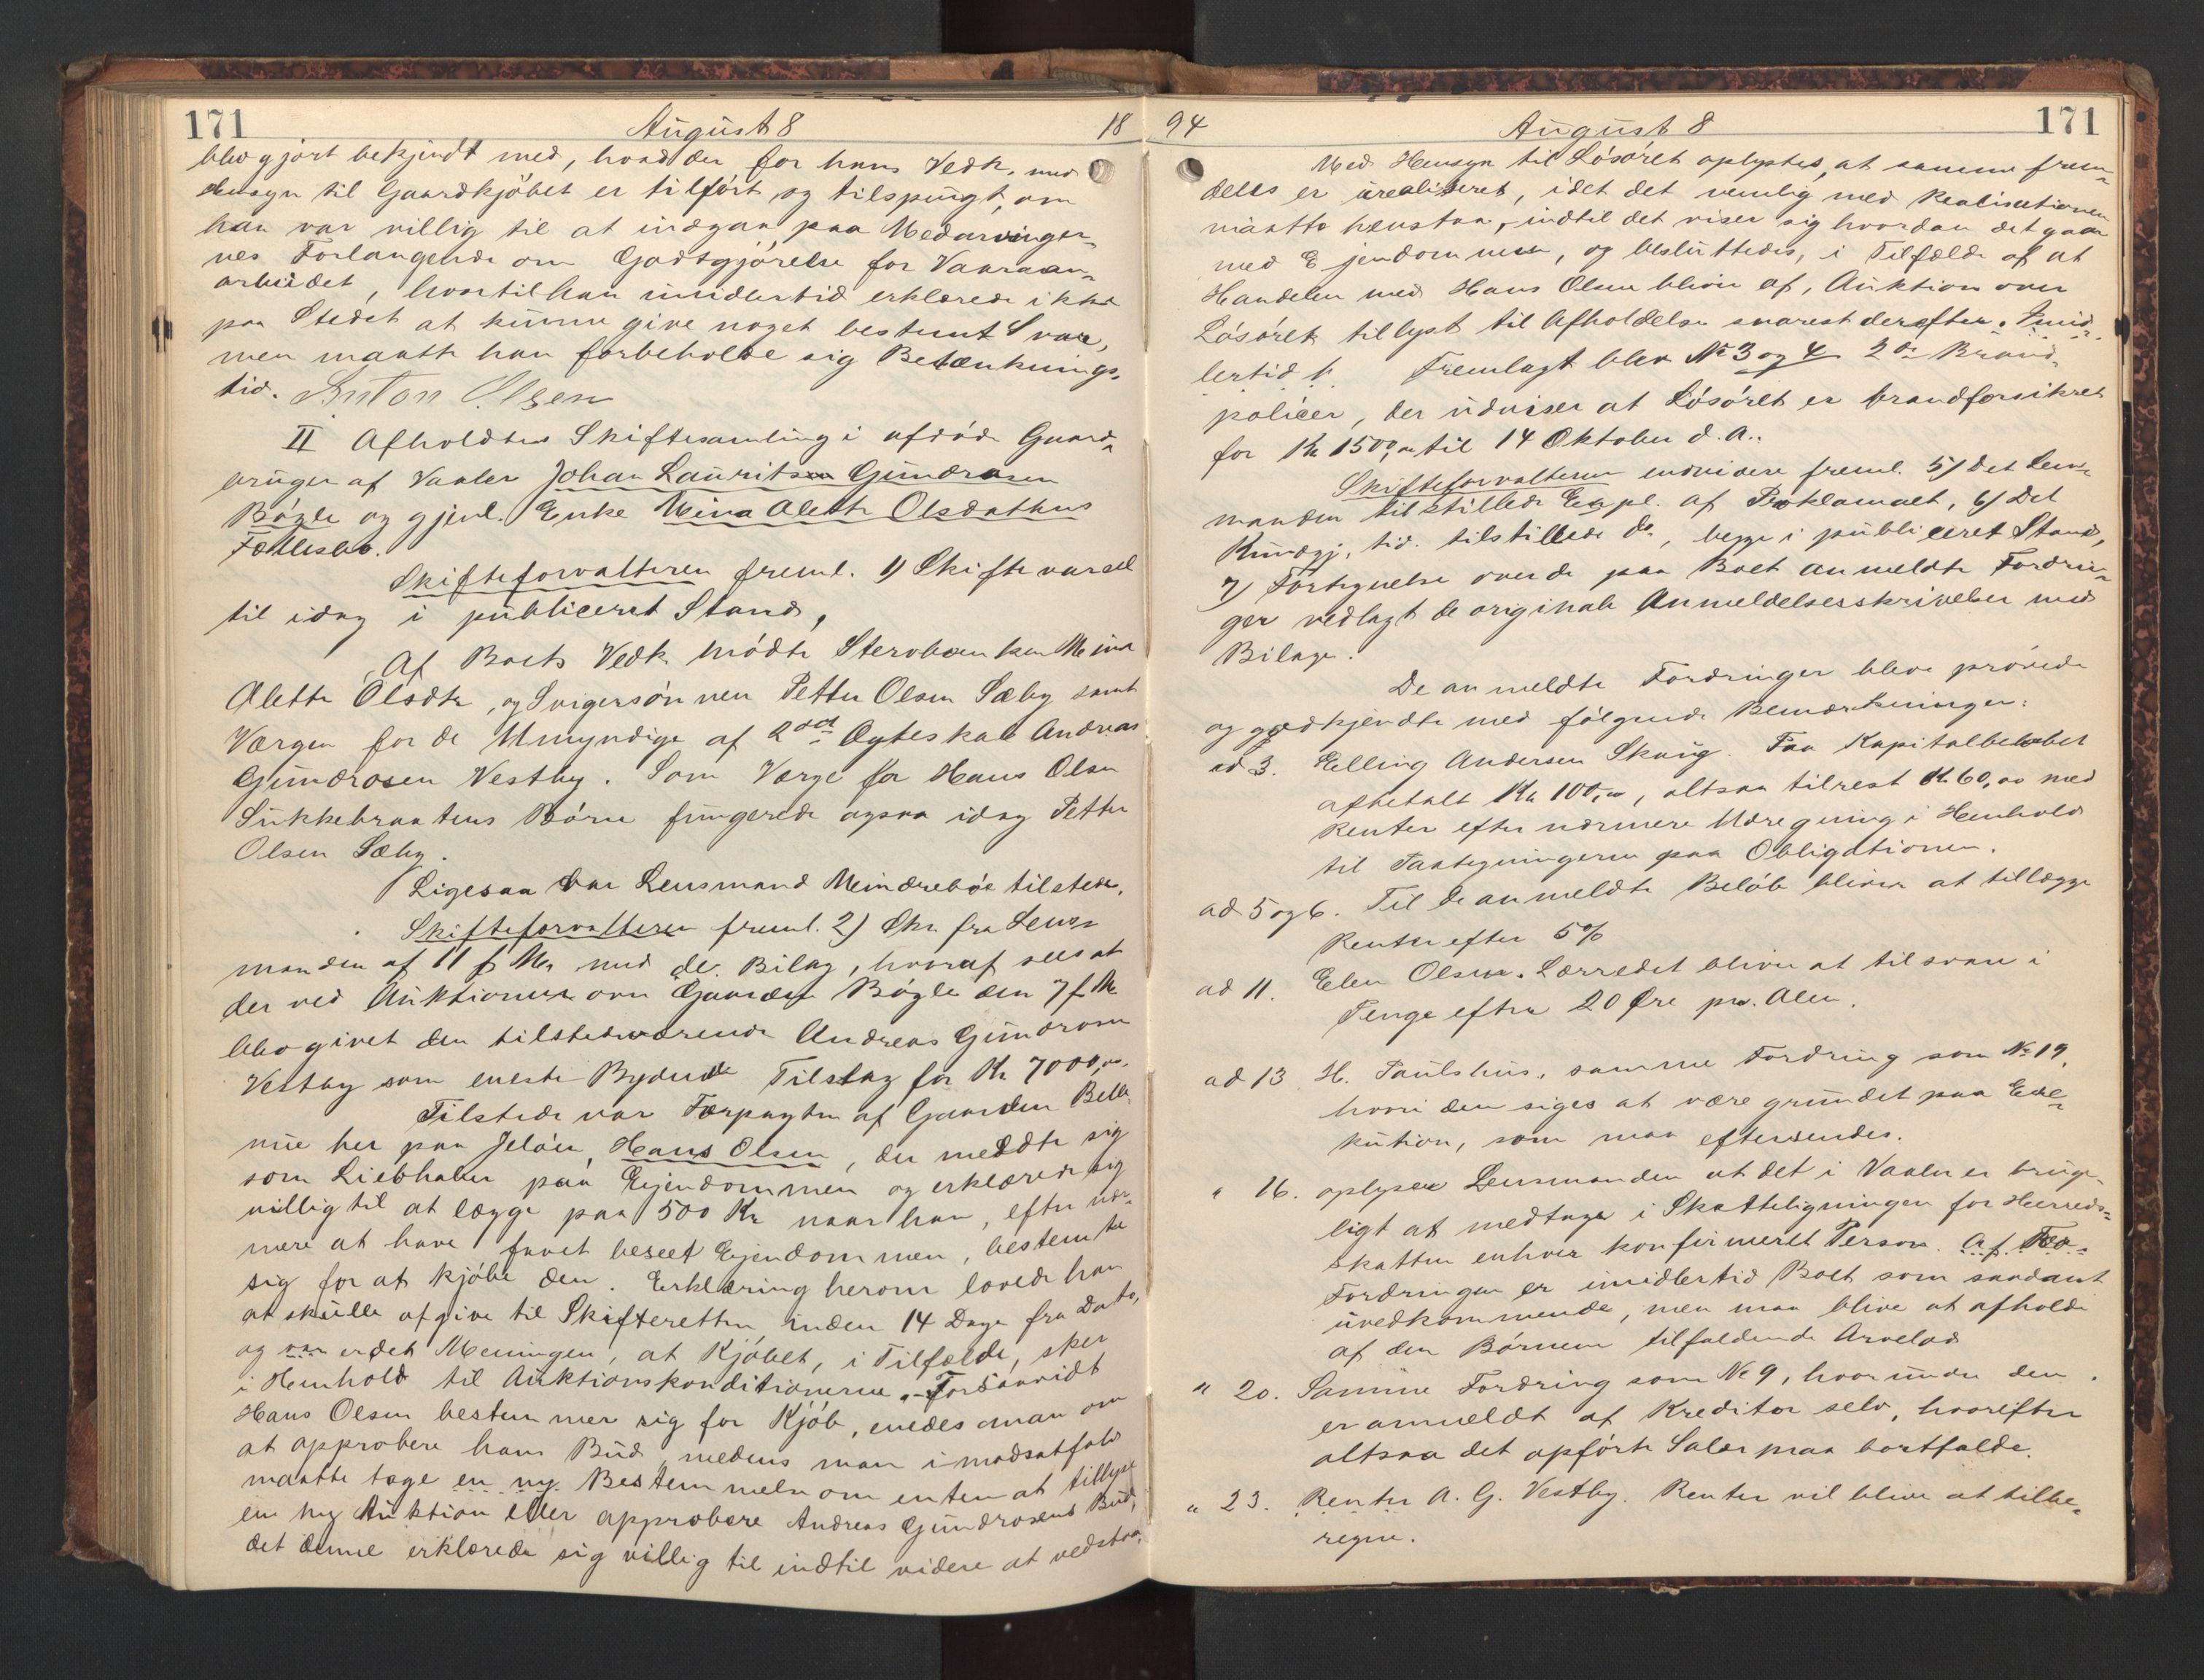 171 August 8 18
blev gjort bekjendt med, hvad der for hans Vedk. med
Hensyn til Gaardkjøbet er tilført og tilspurgt, om
han var villig til at indgaa paa Medarvinger-
nes Forlangende om Godtgjørelse for Vaaraan-
arbeidet, hvortil han imidlertid erklærede ikke
paa Stedet at kunne give noget bestemt Svar,
men maatte han forbeholde sig Betænknings-
tid. Anton Olsen
II Afholdtes Skiftesamling i afdøde Gaard-
bruger af Vaaler Johan Lauritsen Gundrosen
Bøgle og gjenl. Enke Mina Alette Olsdatters
Fællesbo.
Skifteforvalteren freml. 1) Skiftevarsel
til idag i publiceret Stand,
Af Boets Vedk. mødte Stervboenken Mina
Alette Olsdtr, og Svigersønnen Petter Olsen Sæby samt
Værgen for de Umyndige af 2det Ægteskab Andreas
Gundrosen Vestby. Som Værge for Hans Olsen
Sukkebraatens Børn fungerede ogsaa idag Petter
Olsen Sæby.
Ligesaa var Lensmand Meindrebøe tilstede.
Skifteforvalteren freml. 2) Skr. fra Lens-
manden af 11 f. M. med dv. Bilag, hvoraf sees at
der ved Auktionen over Gaarden Bøgle den 7 f. M.
blev givet den tilstedeværende Andreas Gundrosen
Vestby som eneste Bydende Tilslag for Kr 7000,00.
Tilstede var Forpagter af Gaarden Belle-
vue her paa Jeløen, Hans Olsen, der meldte sig
som Liebhaber paa Eiendommen og erklærede sig
villig til at lægge paa 500 Kr naar han, efter nær-
mere at have faaet beseet Eiendommen, bestemte
sig for at kjøbe den. Erklæring herom lovede han
at skulle afgive til Skifteretten inden 14 Dage fra Dato,
og var er det Meningen, at Kjøbet, i Tilfælde, sker
i Henhold til Auktionskonditionerne. Forsaavidt
Hans Olsen bestemmer sig for Kjøb, enedes man om
at approbere hans Bud, medens man i modsat fald
maatte tage en ny Bestemmelse om enten at tillyse
en ny Auktion eller approbere Andreas Gundrosens Bud,
det denne erklærede sig villig til indtil videre at vedstaa.
94 August 8 171
Med Hensyn til Løsøret oplystes, at samme frem-
deles er urealiseret, idet det nemlig med Realisationen
maatte henstaa, indtil det viser sig hvordan det gaar
med Ejendommen, og besluttedes, i Tilfælde af at
Handelen med Hans Olsen bliver af, Auktion over
Løsøret tillyst til Afholdelse snarest derefter. Imid-
lertid b. Fremlagt blev No 3 og 4 2de Brand-
policer, der udviser at Løsøret er brandforsikret
for Kr 1500,00 til 14 Oktober d. A..
Skifteforvalteren endvidere freml. 5) Det Lens-
manden tilstillede Expl. af Proklamaet, 6) Det
Kundgj. tid. tilstillede do, begge i publiceret Stand,
7) Fortegnelse over de paa Boet anmeldte Fordrin-
ger vedlagt de originale Anmeldelsesskrivelser med
Bilage.
De anmeldte Fordringer bleve prøvede
og godkjendte med følgende Bemærkninger:
ad 3. Elling Andersen Skaug. Paa Kapitalbeløbet
afbetalt Kr 100,00, altsaa tilrest Kr. 60,00 med
Renter efter nærmere Udregning i Henhold
til Paategningerne paa Obligationen.
ad 5 og 6. Til de anmeldte Beløb bliver at tillægge
Renter efter 5%
ad 11. Elen Olsen. Lærredet bliver at tilsvare i
Penge efter 20 Øre pr. Alen.
ad 13 H. Paulshus, samme Fordring som No 19,
hvori den siges at være grundet paa Exe-
kution, som maa eftersendes.
" 16. oplyser Lensmanden at det i Vaaler er bruge-
ligt at medtage i Skatteligningen for Herreds-
skatten enhver konfirmeret Person. Af Fo-
Fordringen er imidlertid Boet som saadant
uvedkommende, men maa blive at afholde
af den Børnene tilfaldende Arvelod
" 20. Samme Fordring som No 9, hvorunder den
er anmeldt af Kreditor selv, hvorefter
altsaa det opførte Salær maa bortfalde.
" 23. Renter A. G. Vestby. Renter vil blive at tilbe-
regne.